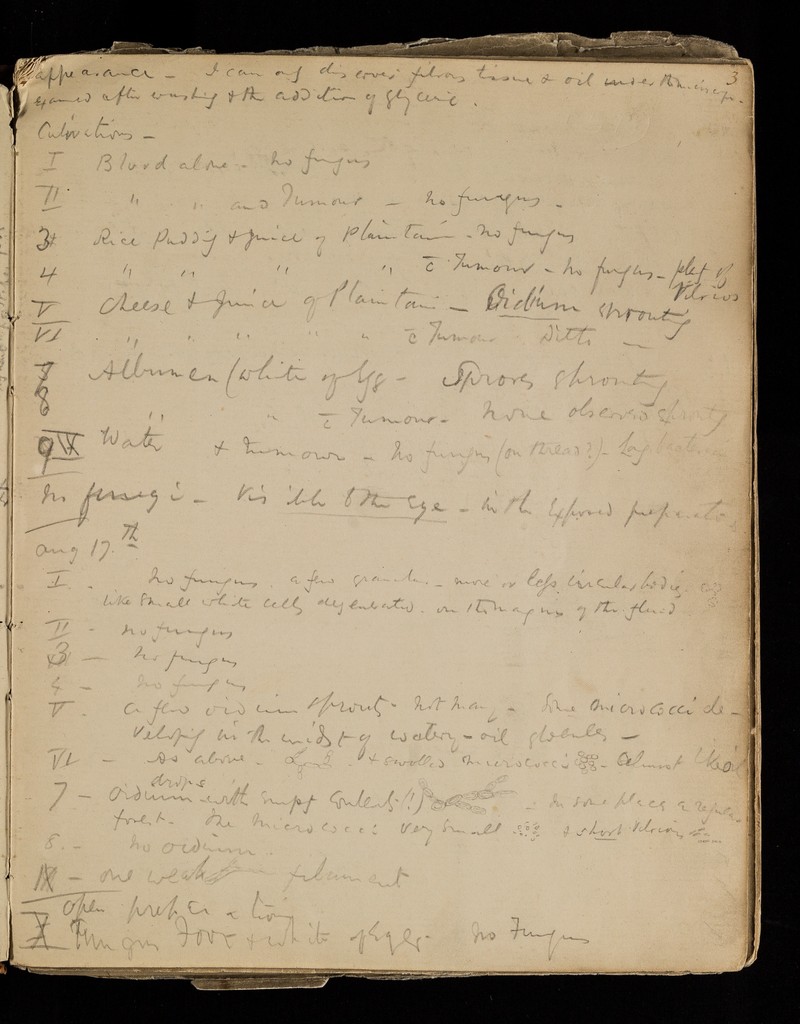 3
appearance - I can only discover fibrous tissue & oil under the microscope -
examined after washing & the addition of glycerine.
Cultivations -
I Blood alone - no fungus
II " " and Tumour - no fungus -
3 Rice Pudding & Juice of Plantain - no fungus
4 " " " " c̄ Tumour - no fungus - plenty of Vibrios
V Cheese & Juice of Plantain - Oidium sprouting
VI " " " " " c̄ Tumour Ditto -
7 Albumen (white of Egg - Spores sprouting
8 " " c̄ Tumour - None observed sprouting
9 Water & tumour - no fungus (on thread?) -
No fungi - visible to the Eye - in the exposed preparato
Aug 17th
I - No fungus. a few granular - more or less circular bodies
like small white cells degenerated. on the margin of the fluid
II - no fungus
3 - no fungus
4 - no fungus
V - a few oidium sprouts - not many - Some micrococci de-
veloping in the midst of watery - oil globules -
VI - As above - & swollen micrococci - almost like oil
drops
7 - Oidium - with Empty Contents (!) - in some places a regular
forest - The micrococci very small & short vibrios
8 - no oidium.
IX - one weak filament
open preparation
X Fungus Foot & white of Egg - no Fungus